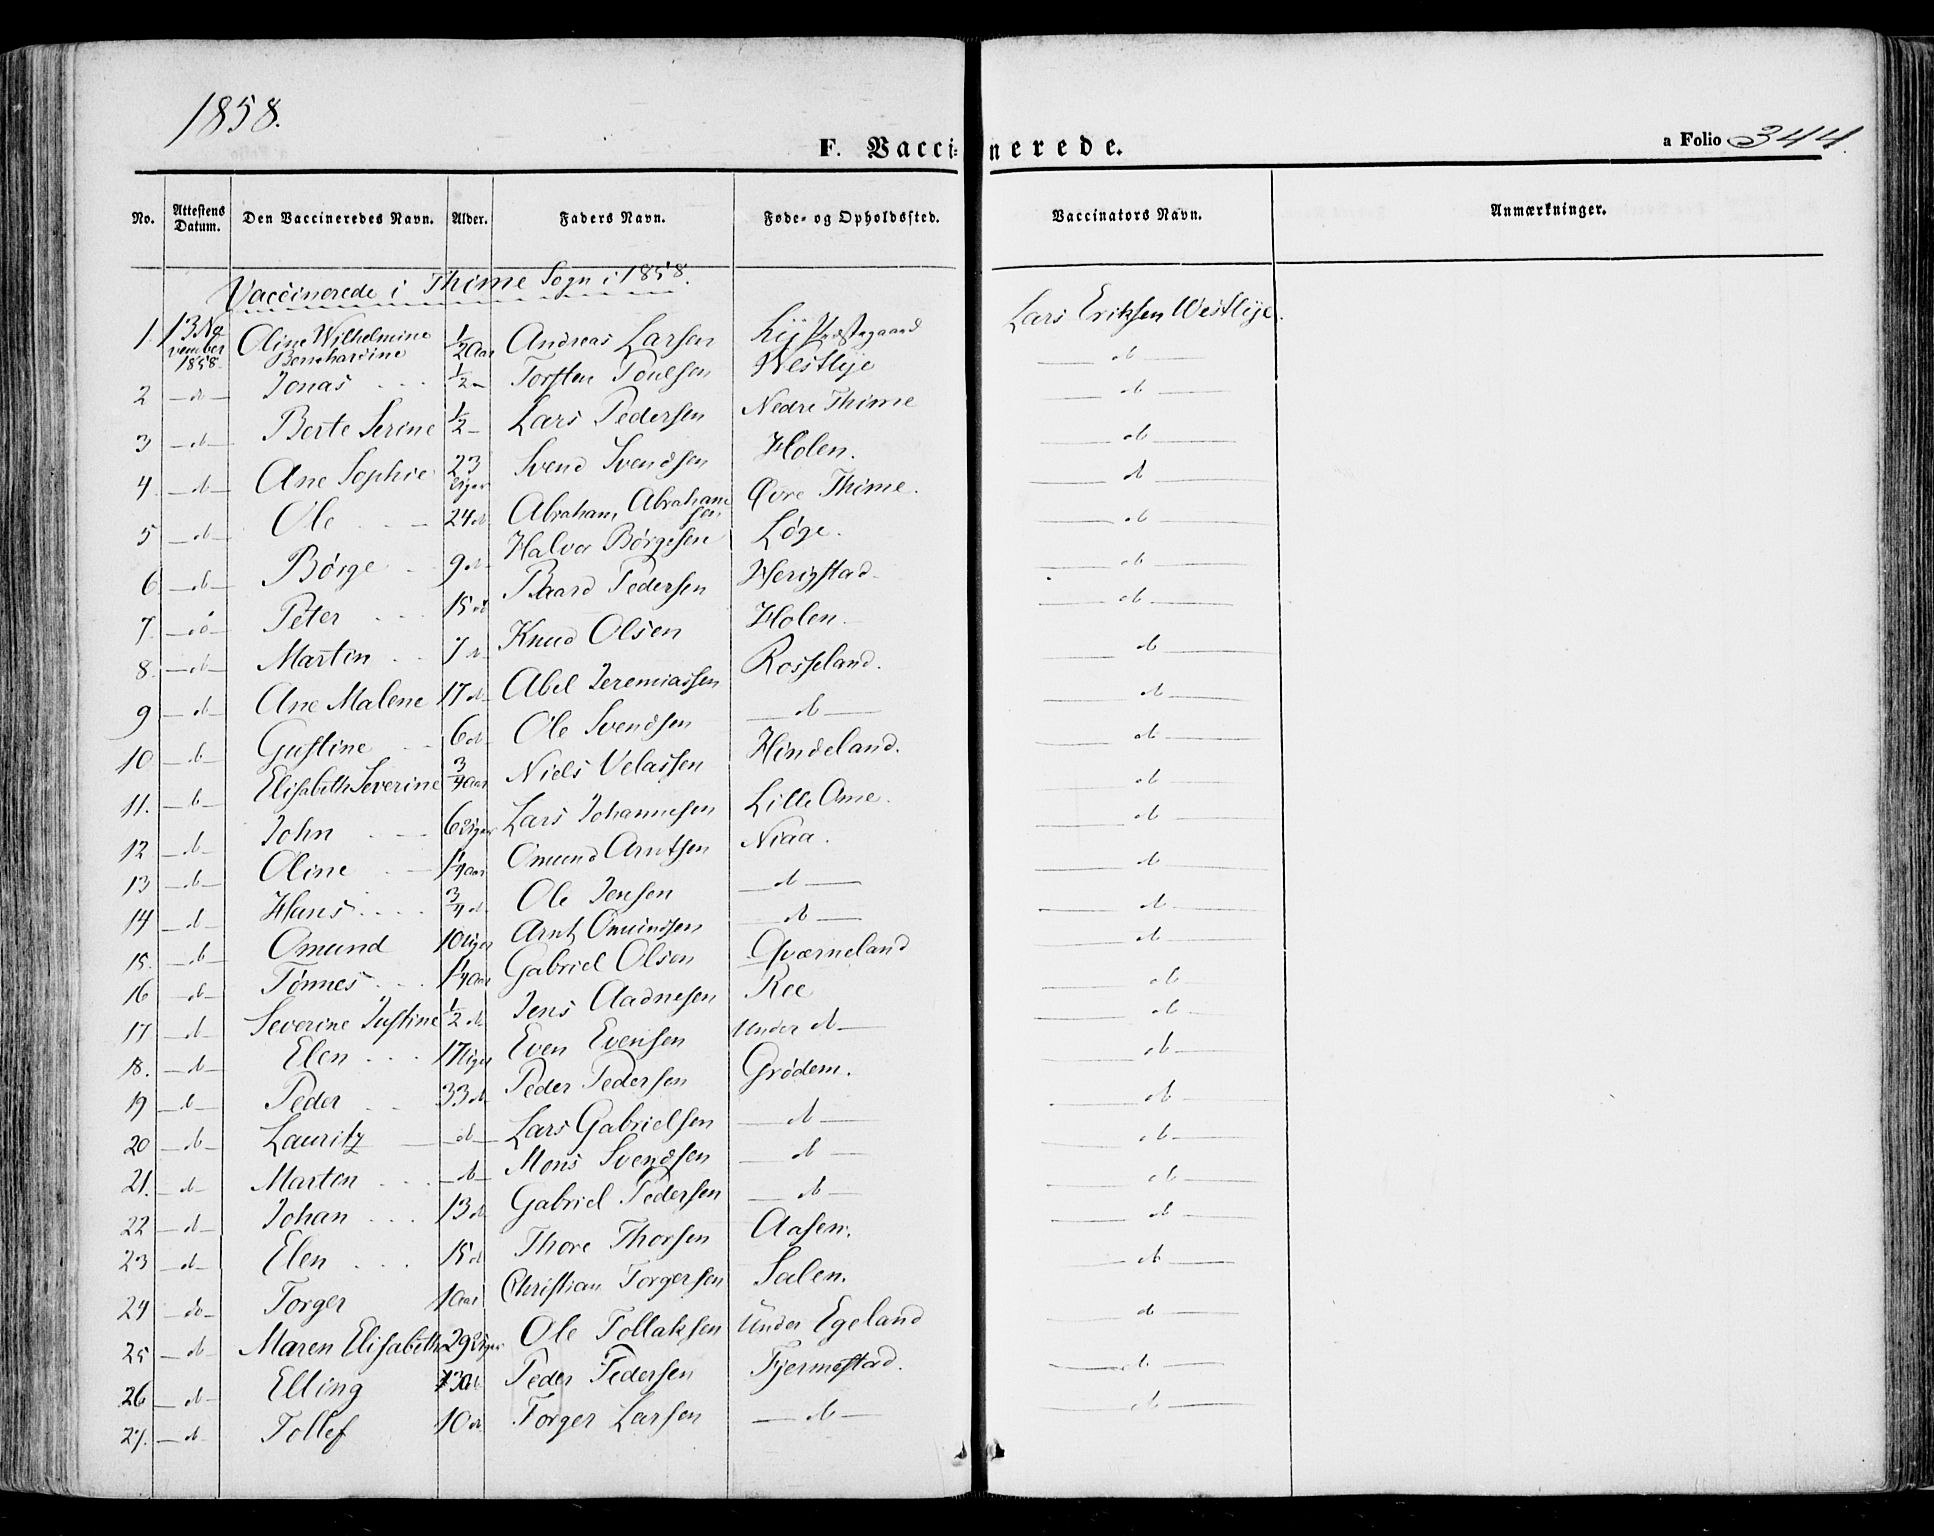 1858.
F. Vaccinerede.
a Folio 344.
No. Attestens Datum. Den Vaccineredes Navn. Alder. Faders Navn. Føde- og Opholdssted. Vaccinators Navn. Anmærkninger.
Vaccinerede i Thime Sogn i 1858.
1. 13 November 1858. Oline Wilhelmine Bernhardine 1/2 Aar Andreas Larsen Lye Præstegaard Lars Eriksen Westlye.
2 - do - Jonas 1/2 - Torsten Poulsen Westlye - do -
3 - do - Berte Serine 1/2 - Lars Pedersen Nedre Thime - do -
4 - do - Ane Sophie 23 Uger Svend Svendsen Holen. - do -
5 - do - Ole 24 do Abraham Abrahamsen Øvre Thime. - do -
6 - do - Børge 9 do Halvor Børgesen Løge. - do -
7 - do - Peter 15 do Baard Pedersen Herigstad. - do -
8. - do - Martin 7 do Knud Olsen Holen. - do -
9 - do - Ane Malene 17 do Abel Jeremiassen Rosseland. - do -
10 - do - Gustine 6 do Ole Svendsen - do - - do -
11. - do - Elisabeth Severine 3/4 Aar Niels Velassen Hindeland. - do -
12 - do - John 6 Uger Lars Johannesen Lille Ame. - do -
13 - do - Oline 1/4 Aar Omund Arntsen Niaa. - do -
14 - do - Hans 3/4 do Ole Jensen - do - - do -
15. - do - Omund 10 Uger Arnt Omundsen - do - - do -
16 - do - Tønnes 1/4 Aar Gabriel Olsen Qværneland - do -
17 - do - Severine Justine 1/2 do Jens Aadnesen Ree - do -
18. - do - Elen 17 Uger Even Evensen Under do - - do -
19 - do - Peder 33 do Peder Pedersen Grødem. - do -
20 - do - Lauritz - do - Lars Gabrielsen - do - - do -
21. - do - Marten - do - Mons Svendsen - do - - do -
22 - do - Johan 13 do Gabriel Pedersen - do - - do -
23 - do - Elen 15 do Thore Thorsen Aasen. - do -
24 - do - Torger 1 Aar Christian Torgersen Salen. - do -
25 - do - Maren Elisabeth 29 Uger Ole Tollaksen Under Egeland - do -
26 - do - Elling Peder Pedersen Fjermestad. - do -
27. - do - Tollef 10 do Torger Larsen - do - - do -